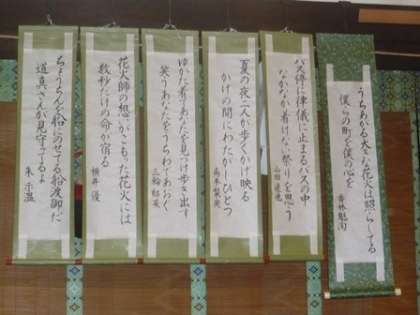 うちあがる大きな花火は照らしてる
僕らの町を僕の心を
バス停に律儀に止まるバスの中
なかなか着けない祭りを思う
夏の夜二人が歩くかげ映る
かげの間にわたがしひとつ
ゆかた着てあなたを見つけ歩き出す
笑うあなたをうちわであおぐ
花火師の想いがこもった花火には
数秒だけの命が宿る
横井 優
ちょうちんを船にのせてる船渡御だ
道真さんが見守ってるよ